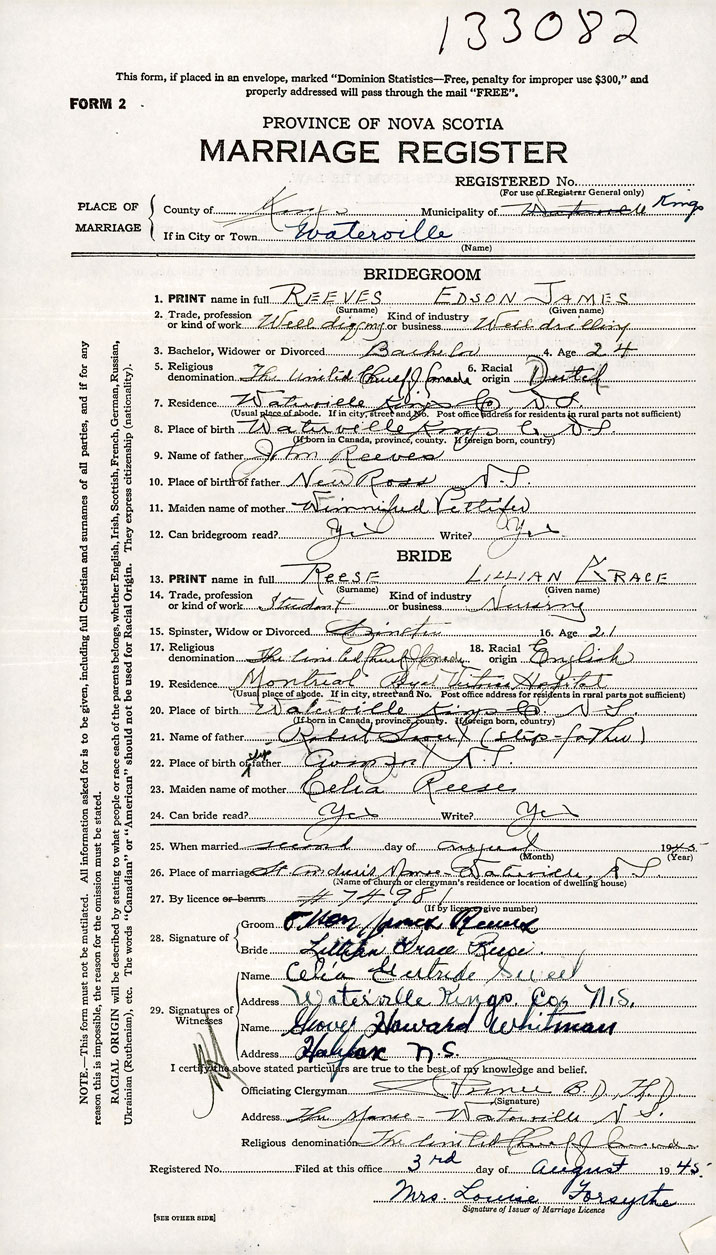 133082
This form, if placed in an envelope, marked "Dominion Statistics—Free, penalty for improper use $300," and
properly addressed will pass through the mail "FREE".
FORM 2
PROVINCE OF NOVA SCOTIA
MARRIAGE REGISTER
REGISTERED No.
(For use of Registrar General only)
PLACE OF MARRIAGE
County of Kings Municipality of Waterville Kings
If in City or Town Waterville
(Name)
BRIDEGROOM
1. PRINT name in full REEVES EDSON JAMES
(Surname) (Given name)
2. Trade, profession or kind of work Well digging Kind of industry or business Well drilling
3. Bachelor, Widower or Divorced Bachelor 4. Age 24
5. Religious denomination The United Church of Canada 6. Racial origin Dutch
7. Residence Waterville Kings Co, N.S.
(Usual place of abode. If in city, street and No. Post office address for residents in rural parts not sufficient)
8. Place of birth Waterville Kings Co N.S.
(If born in Canada, province, county. If foreign born, country)
9. Name of father John Reeves
10. Place of birth of father New Ross N.S.
11. Maiden name of mother Winnifred Pettifer
12. Can bridegroom read? Yes Write? Yes
BRIDE
13. PRINT name in full REESE LILLIAN GRACE
(Surname) (Given name)
14. Trade, profession or kind of work Student Kind of industry or business Nursing
15. Spinster, Widow or Divorced Spinster 16. Age 21
17. Religious denomination The United Church of Canada 18. Racial origin English
19. Residence Montreal Royal Victoria Hospital
(Usual place of abode. If in city, street and No. Post office address for residents in rural parts not sufficient)
20. Place of birth Waterville Kings Co N.S.
(If born in Canada, province, county. If foreign born, country)
21. Name of father Robert (step-father)
22. Place of birth of step father N.S.
23. Maiden name of mother Celia Reese
24. Can bride read? Yes Write? Yes
25. When married second day of August 1945
(Month) (Year)
26. Place of marriage St Andrews Manse - Waterville, N.S.
(Name of church or clergyman's residence or location of dwelling house)
27. By licence or banns # 74981
(If by licence give number)
28. Signature of
Groom James Reeves
Bride Lillian Grace Reese.
29. Signatures of Witnesses
Name Celia Gertrude Sweet
Address Waterville Kings. Co. N.S.
Name Howard Whitman
Address Halifax N.S.
I certify the above stated particulars are true to the best of my knowledge and belief.
Officiating Clergyman B.D.
(Signature)
Address The Manse - Waterville N.S.
Religious denomination The United Church of Canada
Registered No. Filed at this office 3rd day of August 1945.
Mrs. Louise Forsythe
Signature of Issuer of Marriage Licence
[SEE OTHER SIDE]
NOTE.—This form must not be mutilated. All information asked for is to be given, including full Christian and surnames of all parties, and if for any
reason this is impossible, the reason for the omission must be stated.
RACIAL ORIGIN will be described by stating to what people or race each of the parents belongs, whether English, Irish, Scottish, French, German, Russian,
Ukrainian (Ruthenian), etc. The words "Canadian" or "American" should not be used for Racial Origin. They express citizenship (nationality).